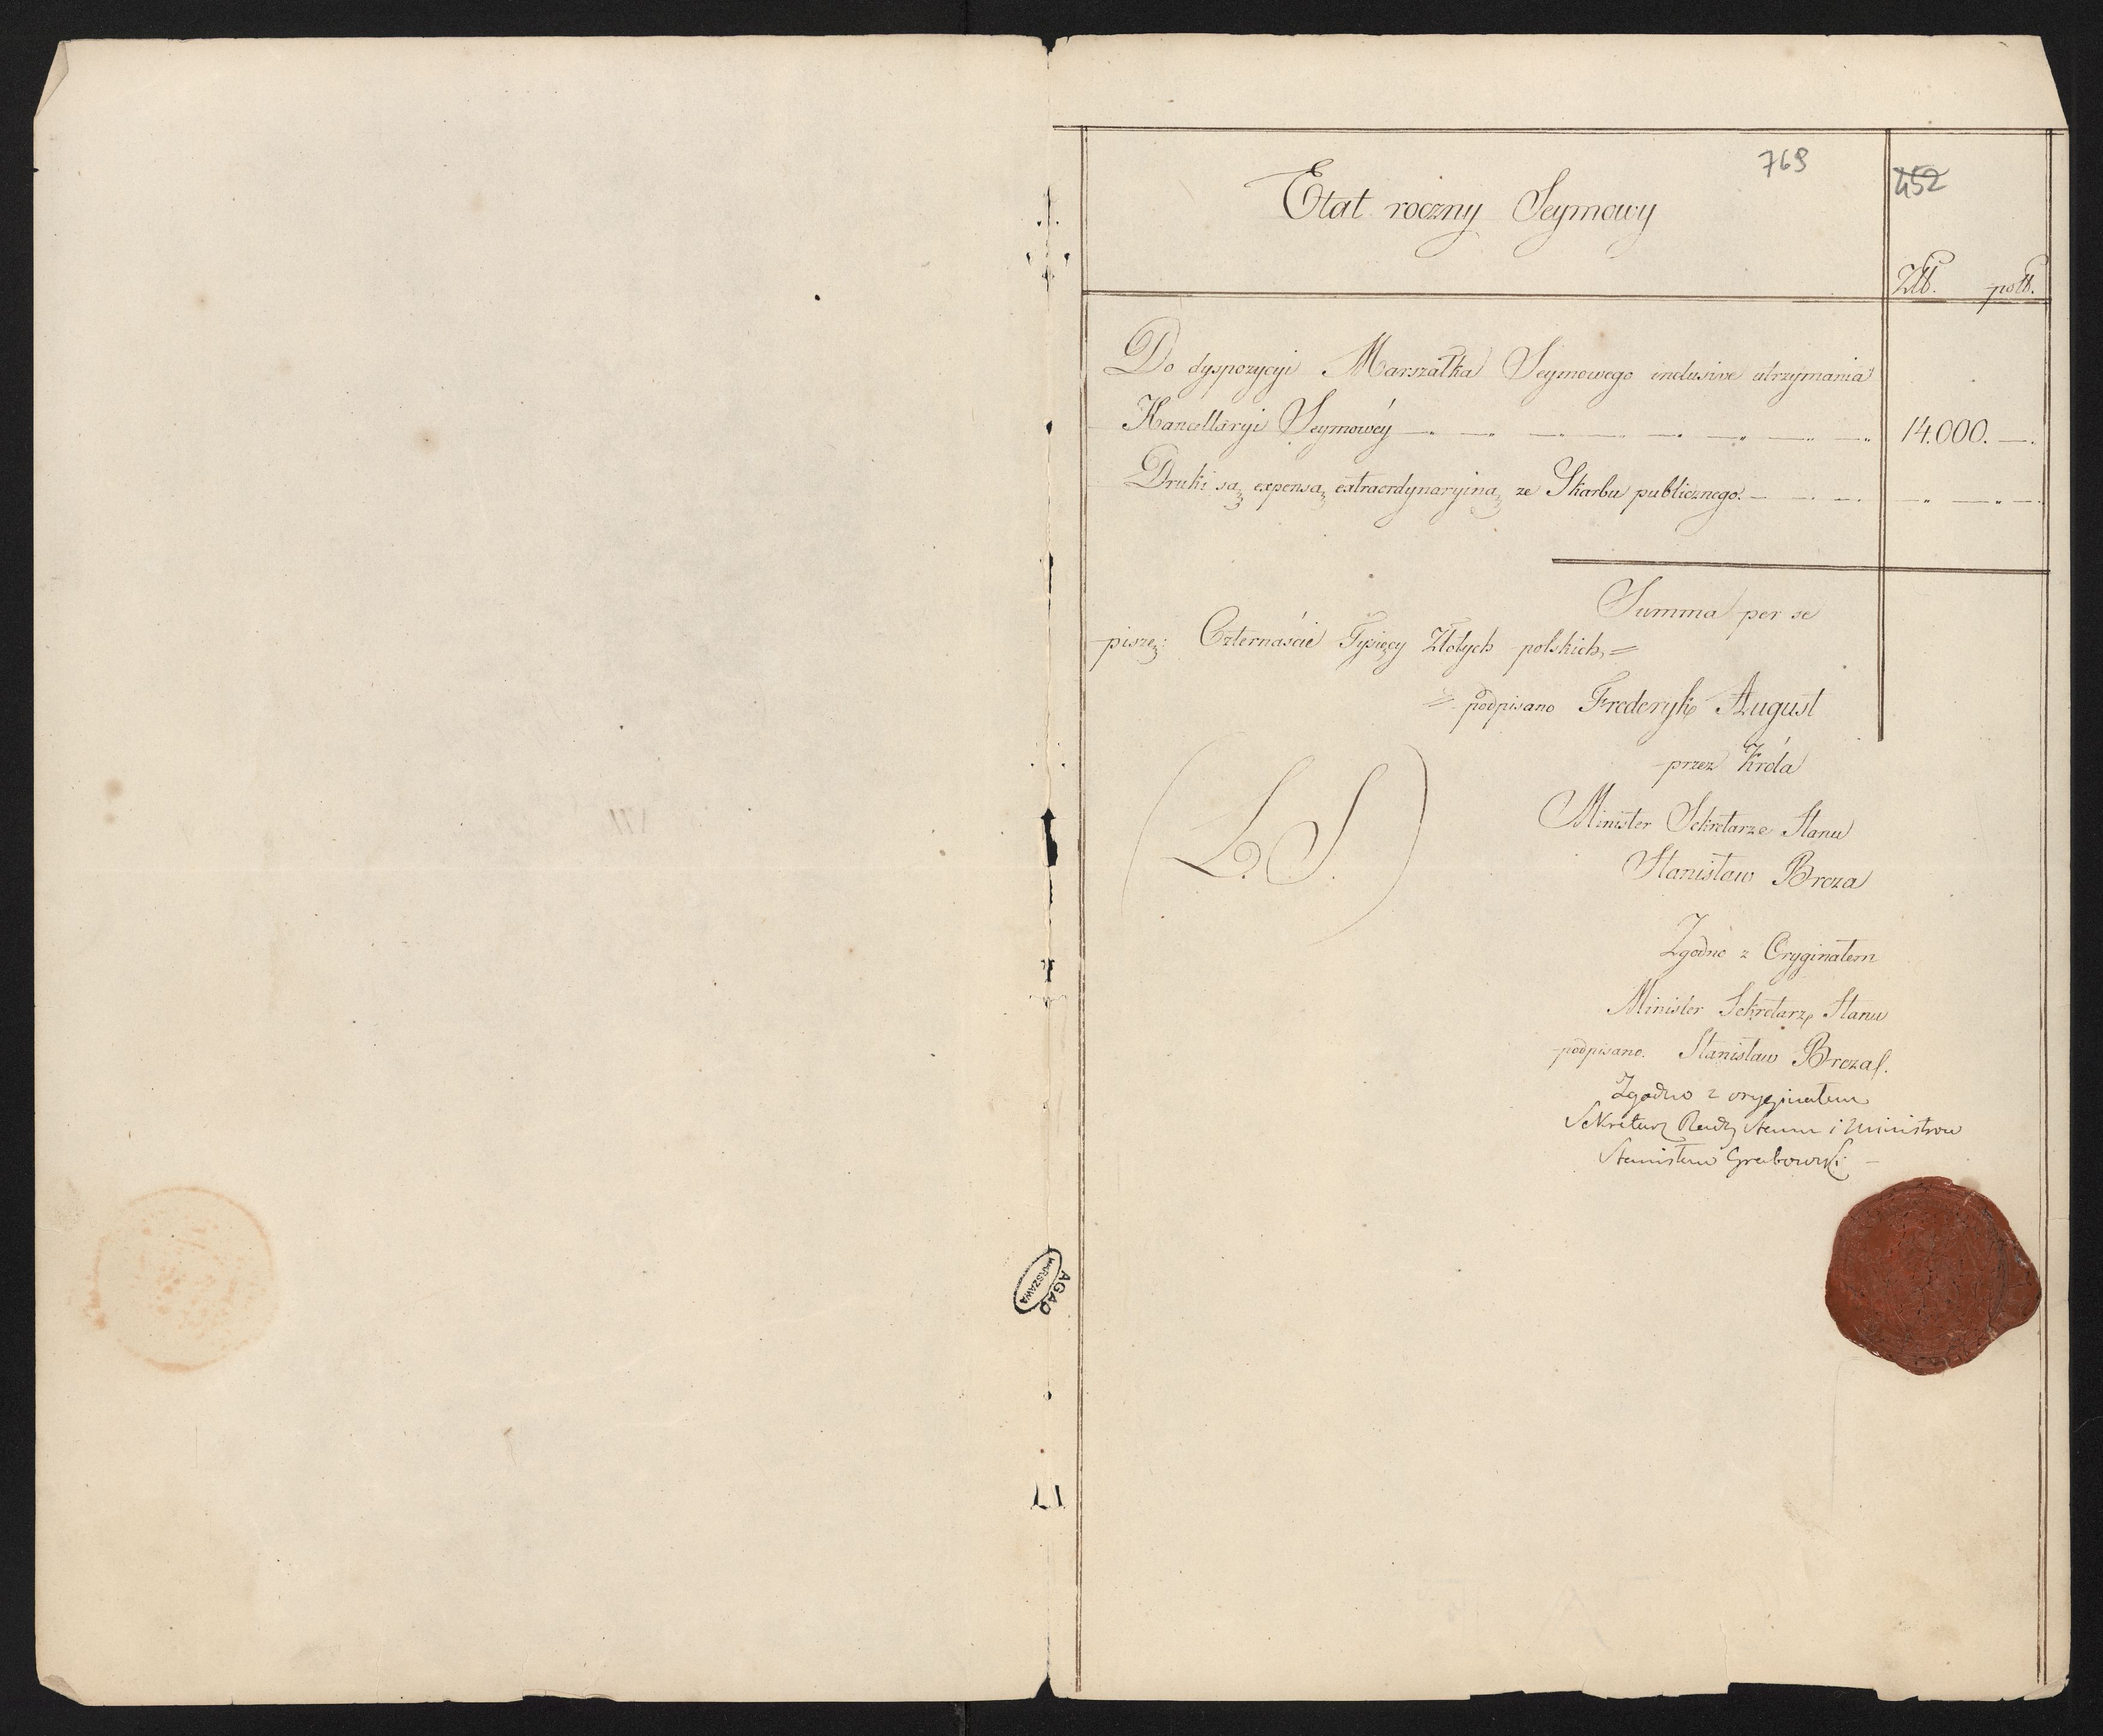 769
452
Etat roczny Seymowy
Złł. polł.
Do dyspozycyi Marszałka Seymowego inclusive utrzymania
Kancellaryi Seymowéy 14.000. —.
Druki są expensą extraordynaryiną ze Skarbu publicznego.
Summa per se
piszę: Czternaście Tysięcy Złotych polskich =
= podpisano Frederyk August
przez Króla
Minister Sekretarz Stanu
Stanisław Breza
(L. S.)
Zgodno z Oryginałem
Minister Sekretarz Stanu
podpisano. Stanisław Breza.
Zgodno z oryginałem
Sekretarz Rady Stanu i Ministrow
Stanisław Grabowski
AGAD
WARSZAWA